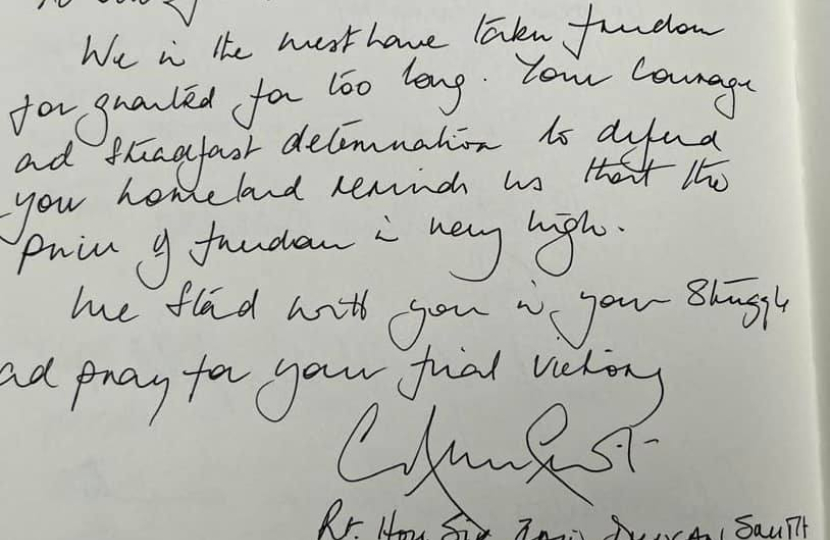 We in the west have taken freedom
for granted for too long. Your courage
and steadfast determination to defend
your homeland reminds us that the
price of freedom is very high.
We stand with you in your struggle
and pray for your final victory
Rt. Hon Sir Iain Duncan Smith